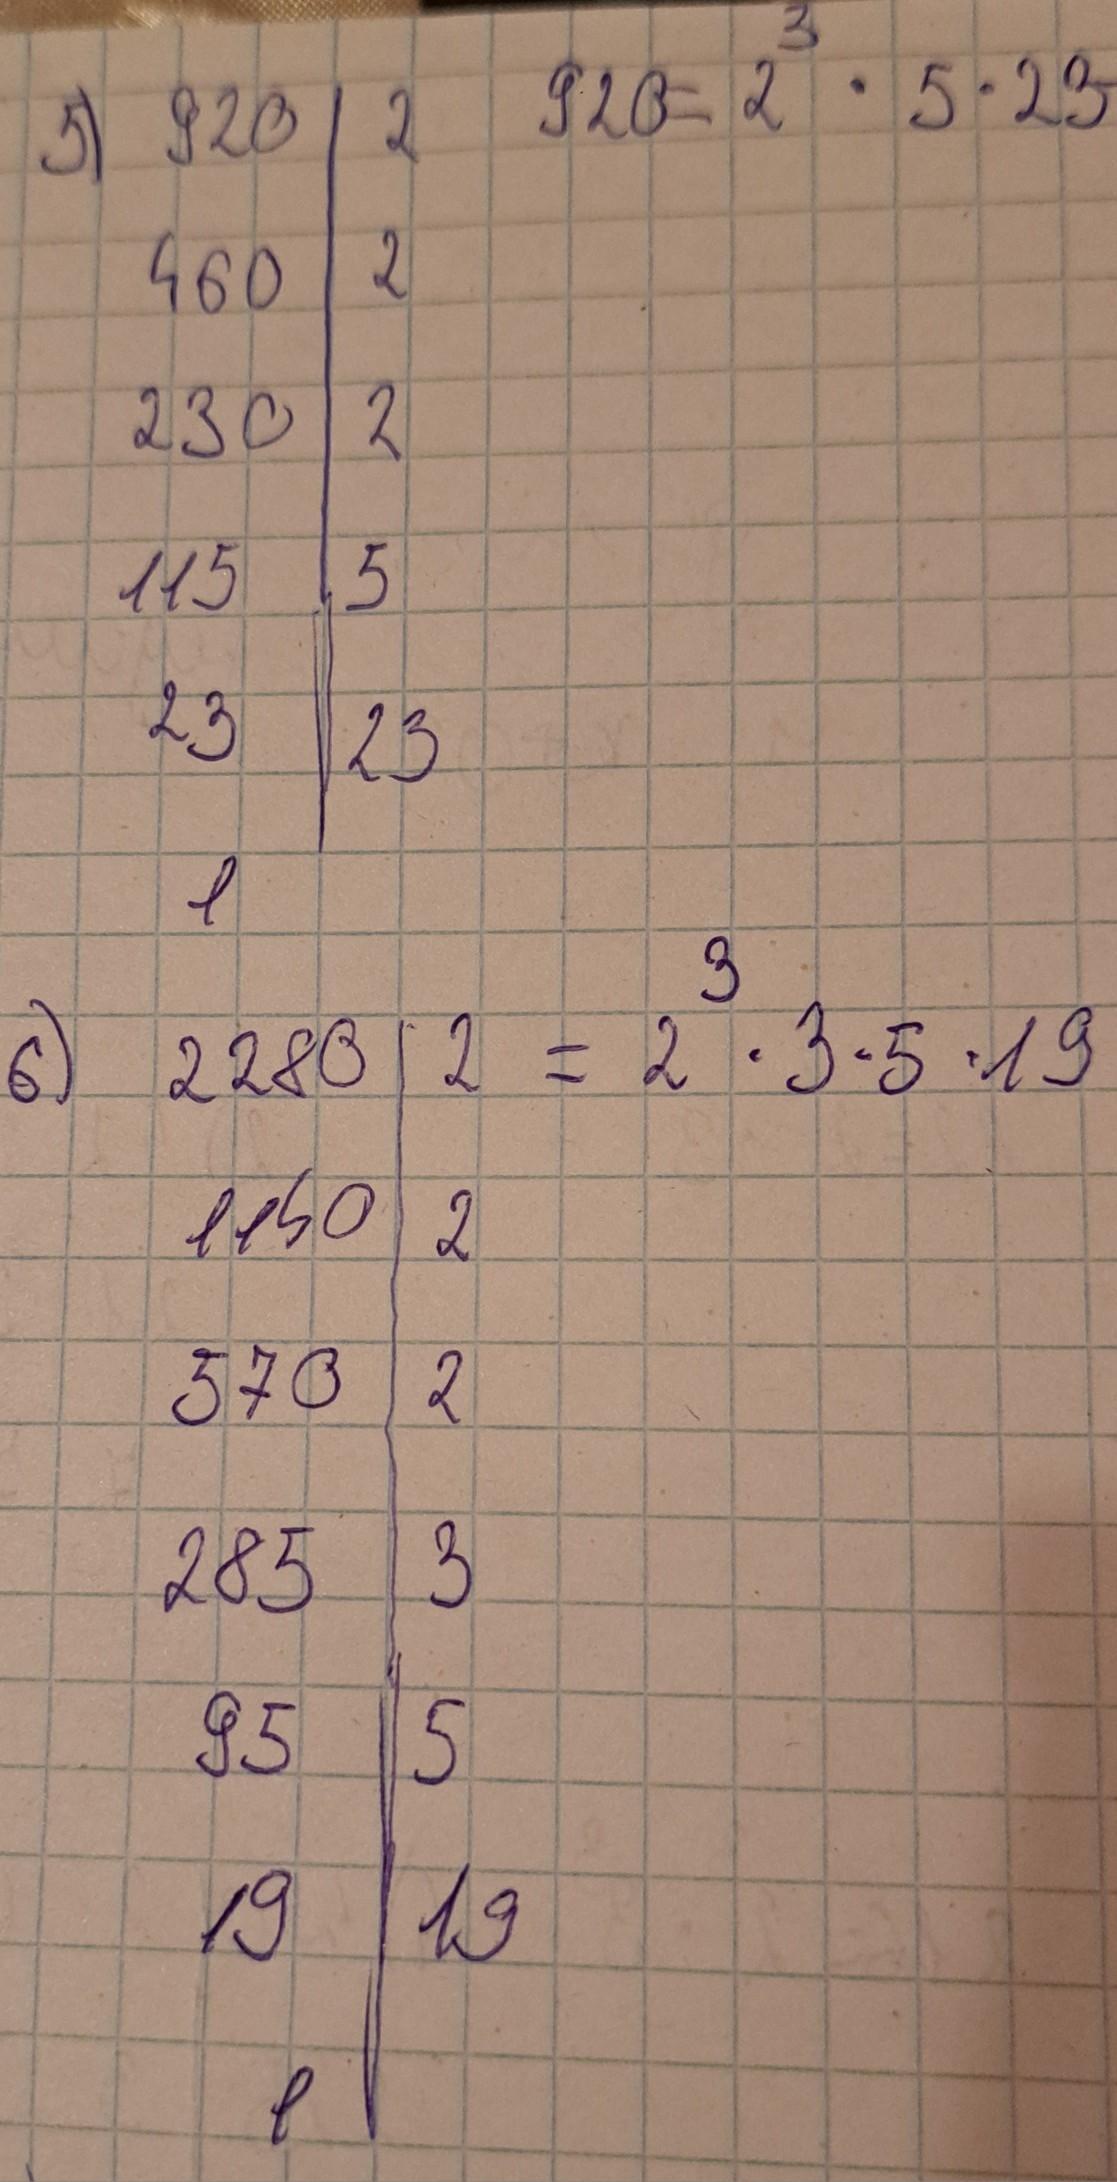 5) 920 | 2 920 = 2³ · 5 · 23
460 | 2
230 | 2
115 | 5
23 | 23
1
6) 2280 | 2 = 2³ · 3 · 5 · 19
1140 | 2
570 | 2
285 | 3
95 | 5
19 | 19
1